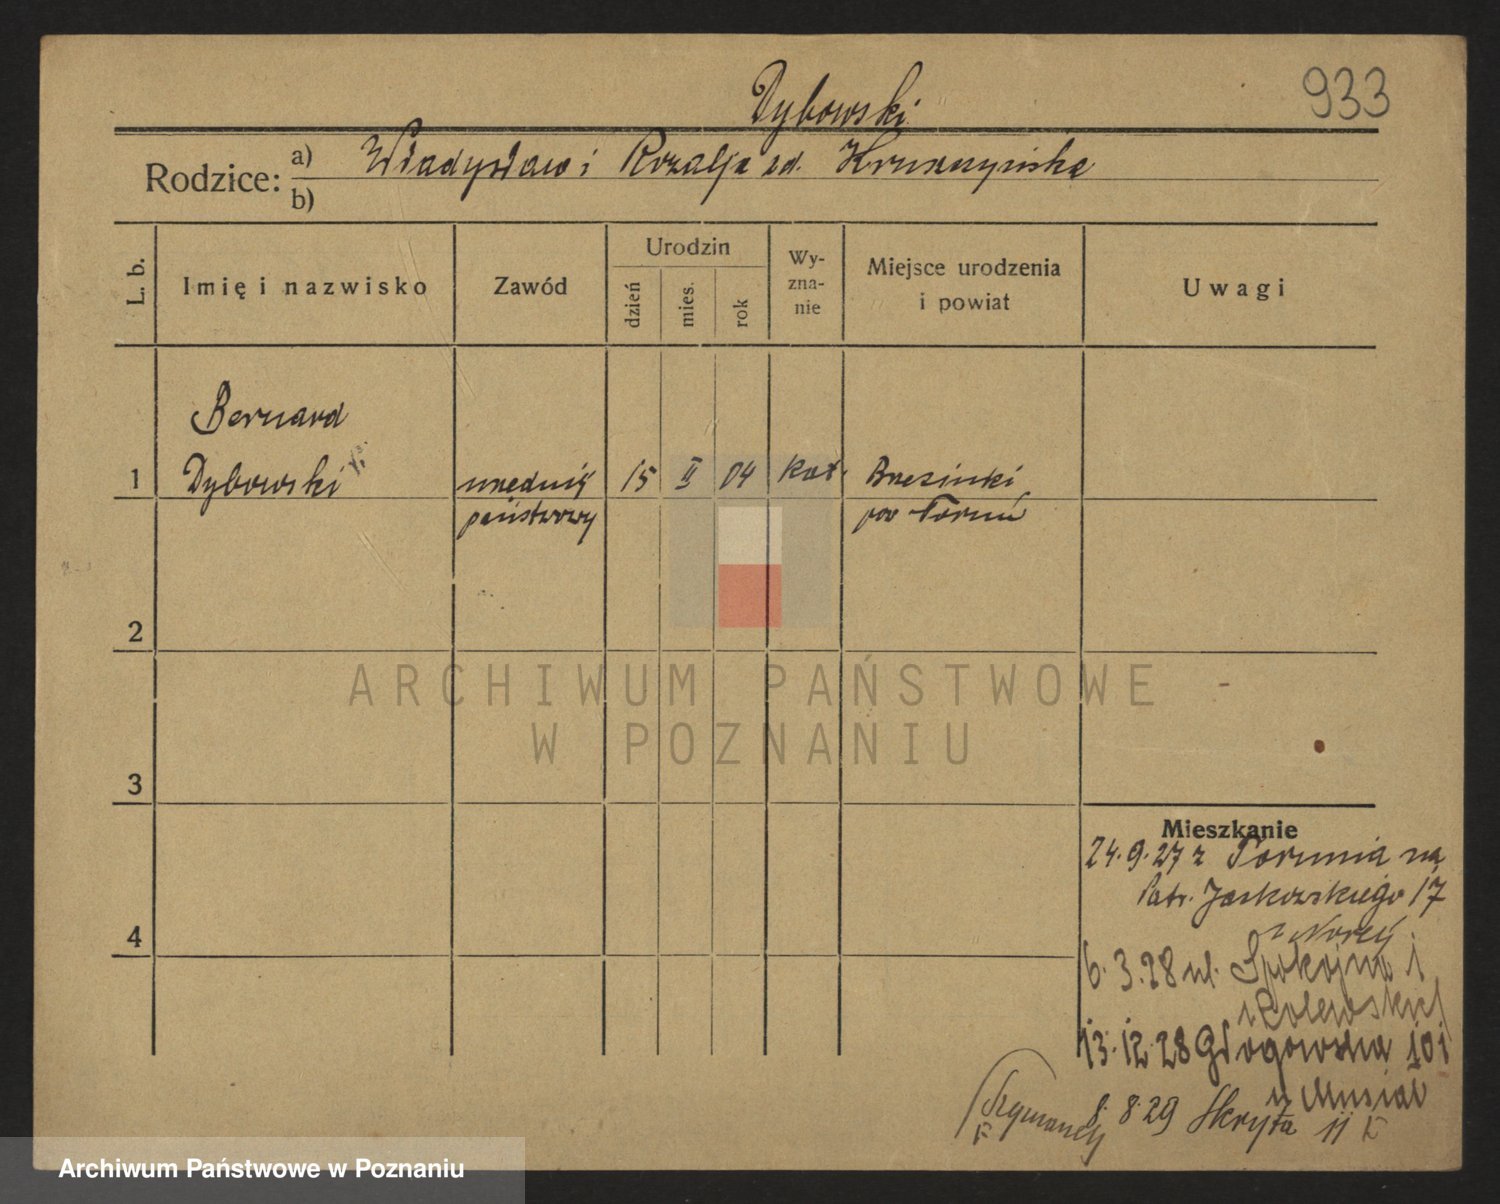 933
Dybowski
Rodzice: a) Władysław i Rozalja zd. Kruszyńska
b)
L. b.
Imię i nazwisko
Zawód
Urodzin
dzień
mies.
rok
Wy-
zna-
nie
Miejsce urodzenia
i powiat
Uwagi
Bernard
1 Dybowski urzędnik 15 II 04 kat. Brzezinki
państwowy pow Toruń
2
3
4
ARCHIWUM PAŃSTWOWE
W POZNANIU
Mieszkanie
24.9.27 z Torunia na
Patr. Jackowskiego 17
6.3.28 ul. Spokojna
13.12.28 Głogowska 101
u Musiał
8.8.29 Skryta 11
Archiwum Państwowe w Poznaniu